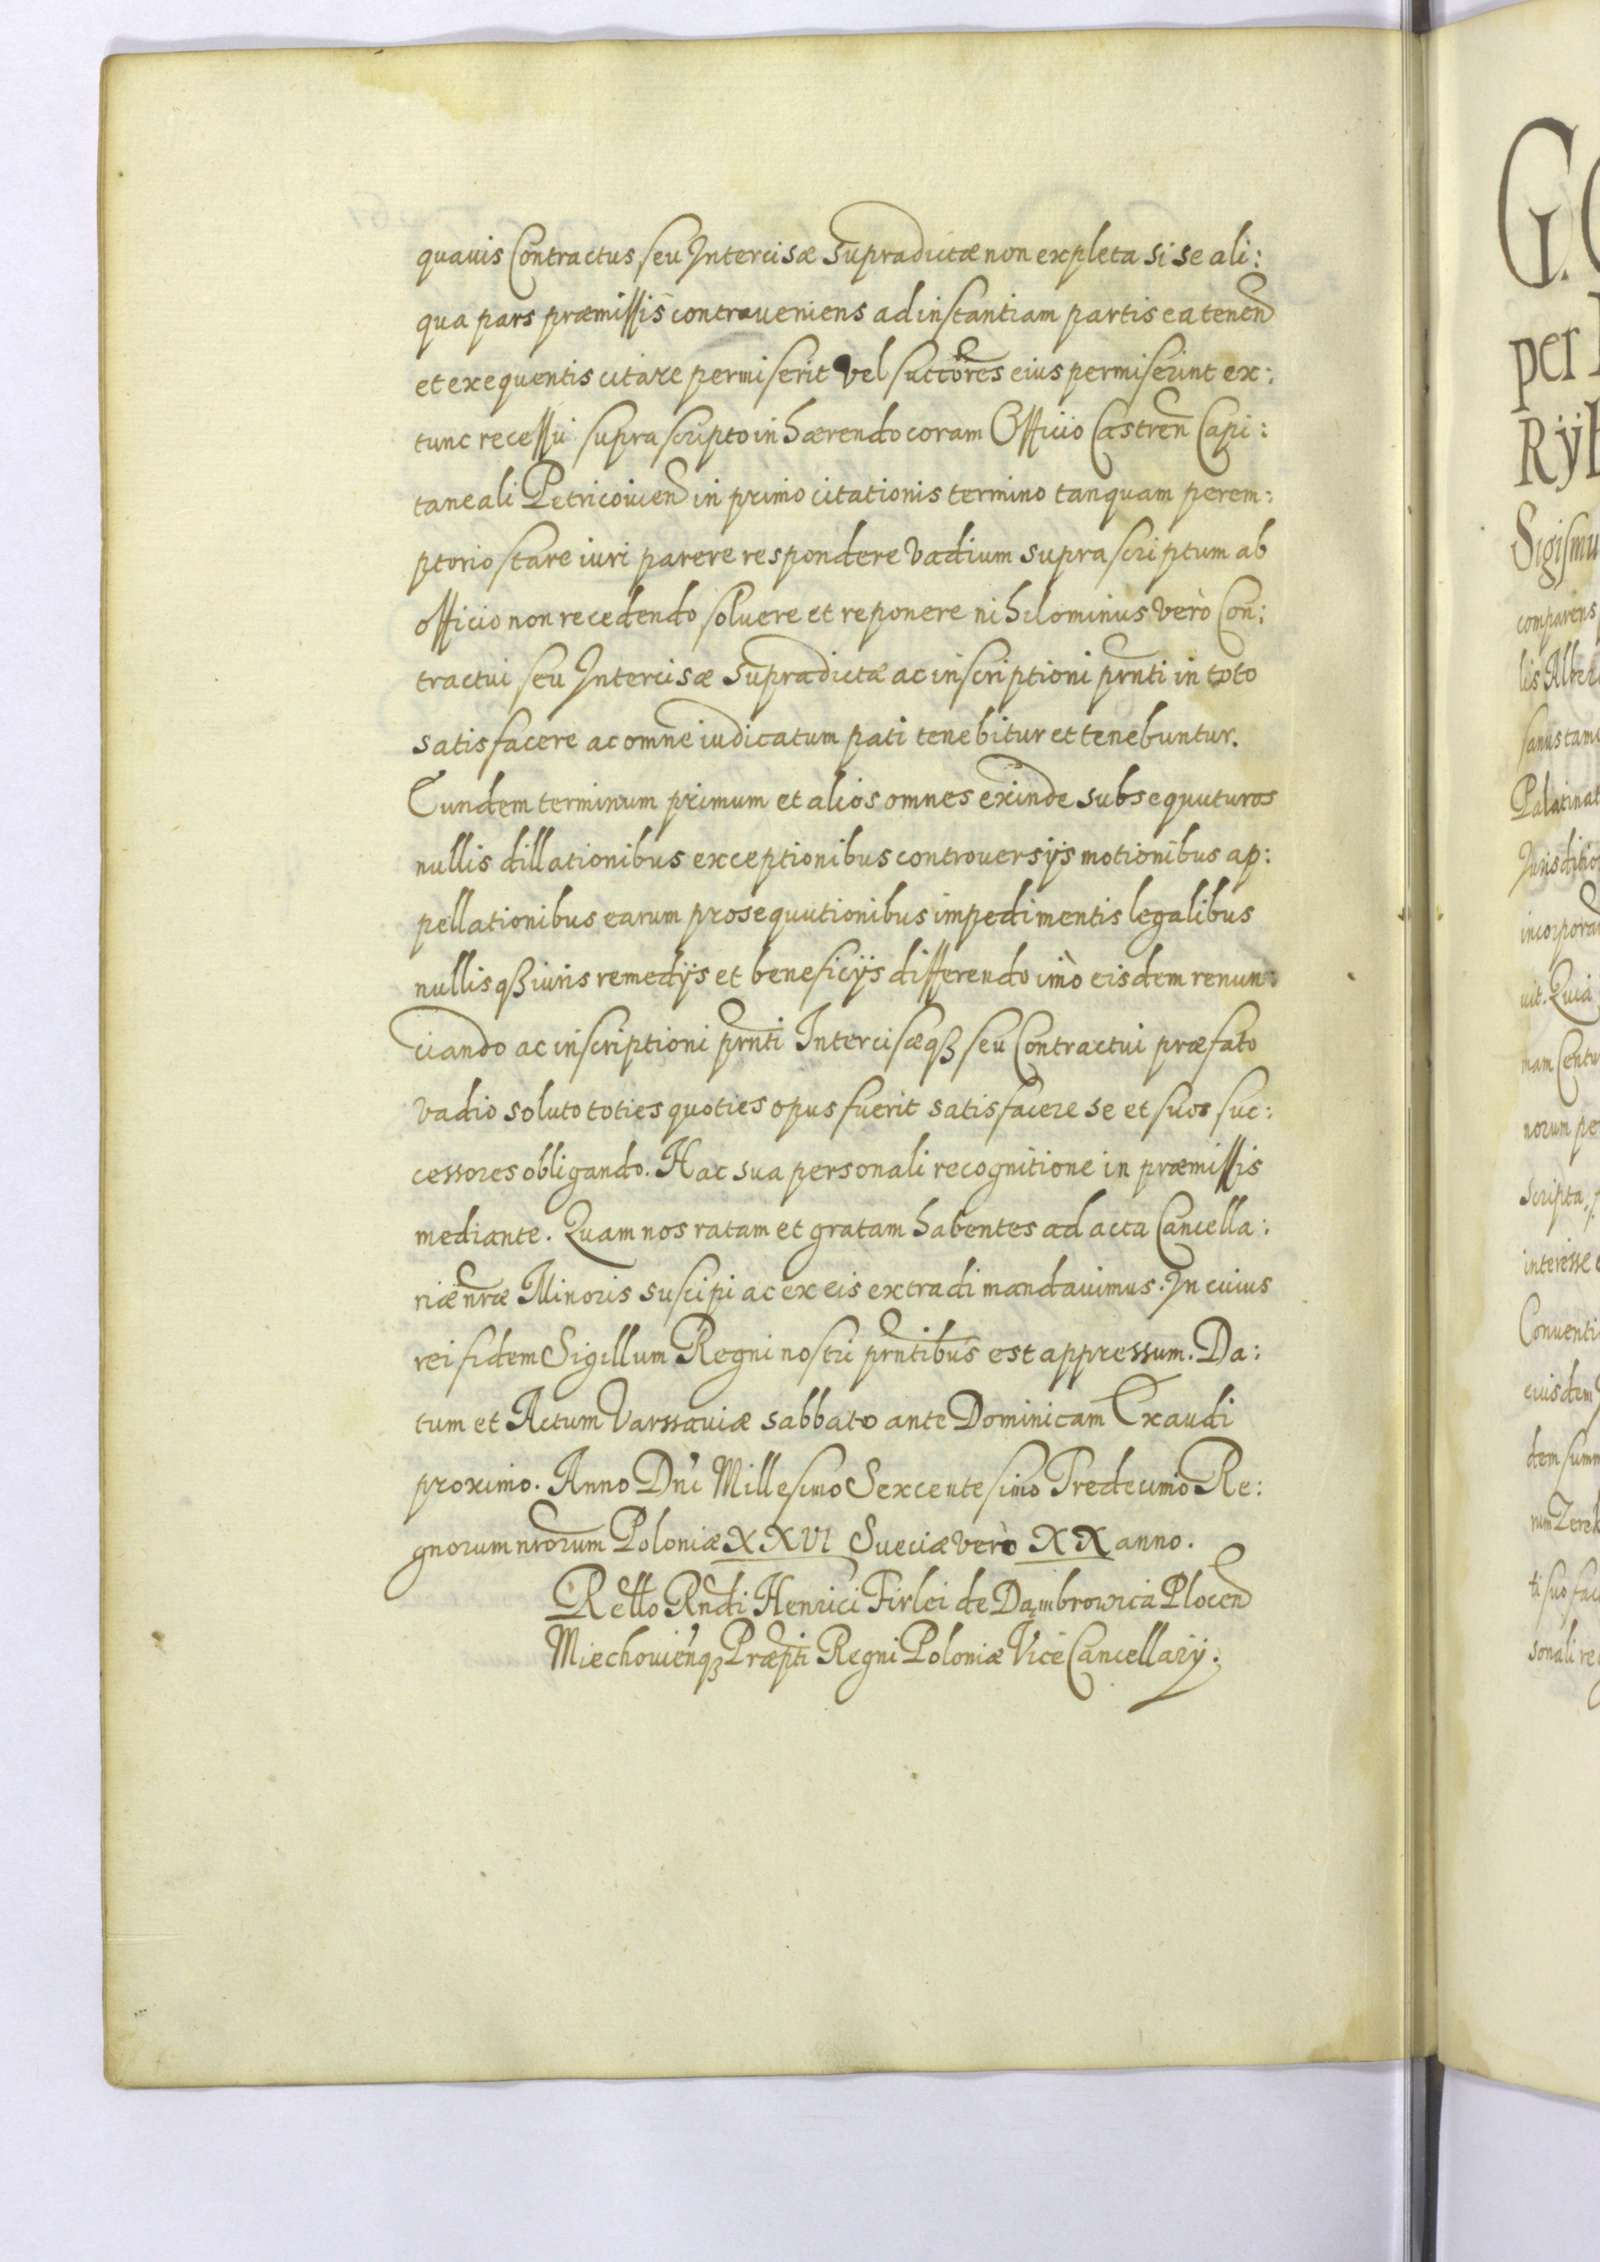 quauis Contractus seu Intercisæ supradictæ non expleta si se ali:
qua pars præmissis contraueniens ad instantiam partis ea tenen
et exequentis citare permiserit vel succores eius permiserint ex:
tunc recessui supra scripto inhærendo coram Officio Castren Capi:
taneali Petricouien in primo citationis termino tanquam perem:
ptorio stare iuri parere respondere vadium supra scriptum ab
officio non recedendo soluere et reponere nihilominus verò Con:
tractui seu Intercisæ supradictæ ac inscriptioni prnti in toto
satisfacere ac omne iudicatum pati tenebitur et tenebuntur.
Eundem terminum primum et alios omnes exinde subsequuturos
nullis dillationibus exceptionibus controuersijs motionibus ap:
pellationibus earum prosequutionibus impedimentis legalibus
nullisqß iuris remedijs et beneficijs differendo imò eisdem renun:
ciando ac inscriptioni prnti Intercisæqß seu Contractui præfato
vadio soluto toties quoties opus fuerit satisfacere se et suos suc:
cessores obligando. Hac sua personali recognitione in præmissis
mediante. Quam nos ratam et gratam habentes ad acta Cancella:
riæ nræ Minoris suscipi ac ex eis extradi mandauimus. In cuius
rei fidem Sigillum Regni nostri prntibus est appressum. Da:
tum et Actum Varssauiæ sabbato ante Dominicam Exaudi
proximo. Anno Dni Millesimo Sexcentesimo Tredecimo Re:
gnorum nrorum Poloniæ XXVI Sueciæ verò XX anno.
Rello Rndi Henrici Firlei de Dąmbrowica Plocen
Miechouienqß Præpti Regni Poloniæ Vice Cancellarij.
G.
per
Rÿb
Sigismu
comparens
lis Alber
sanus tam
Palatinat
Jurisdictio
incorpora
uit. Quia
nam Centu
norum pe
scripta
interesse
Conuenti
eiusdem
dem summ
rum
ti suo fac
sonali re